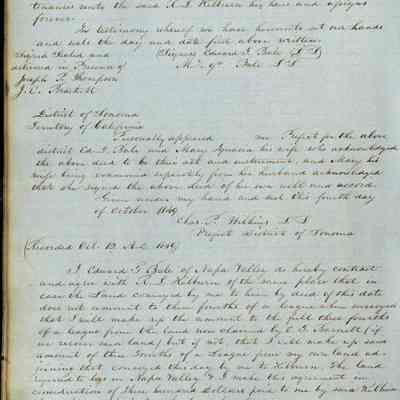 tenances unto the said R. L. Kilburn his heirs and assigns
forever.
In testimony whereof we have hereunto set our hands
and seals the day and date first above written.
Signed Sealed and (Signed) Edward T. Bale (L S)
delivered in Presence of Ma Ya Bale L S
Joseph P. Thompson
J. C.
District of Sonoma
Territory of California
Personally appeared me Prefect for the above
district Ed. T. Bale and Mary Ignacia his wife who acknowledged
the above deed to be their act and instrument, and Mary his
wife being examined separately from her husband acknowledged
that she signed the above deed of her own will and accord.
Given under my hand and seal this fourth day
of October 1849
Chas. P. Wilkins L S
Prefect District of Sonoma
(Recorded Oct. 13. A.D. 1849)
I Edward T. Bale of Napa Valley do hereby contract
and agree with R. L. Kilburn of the same place that in
case the Land conveyed by me to him by deed of this date
does not amount to three fourths of a league when surveyed
that I will make up the amount to the full three fourths
of a league from the land now claimed by E. Barnett (if
we recover said land) but if not, that I will make up said
amount of three fourths of a League from my own land ad-
joining that conveyed this day by me to Kilburn. The land
referred to lays in Napa Valley & I make this agreement in
consideration of Three hundred Dollars paid to me by said Kilburn